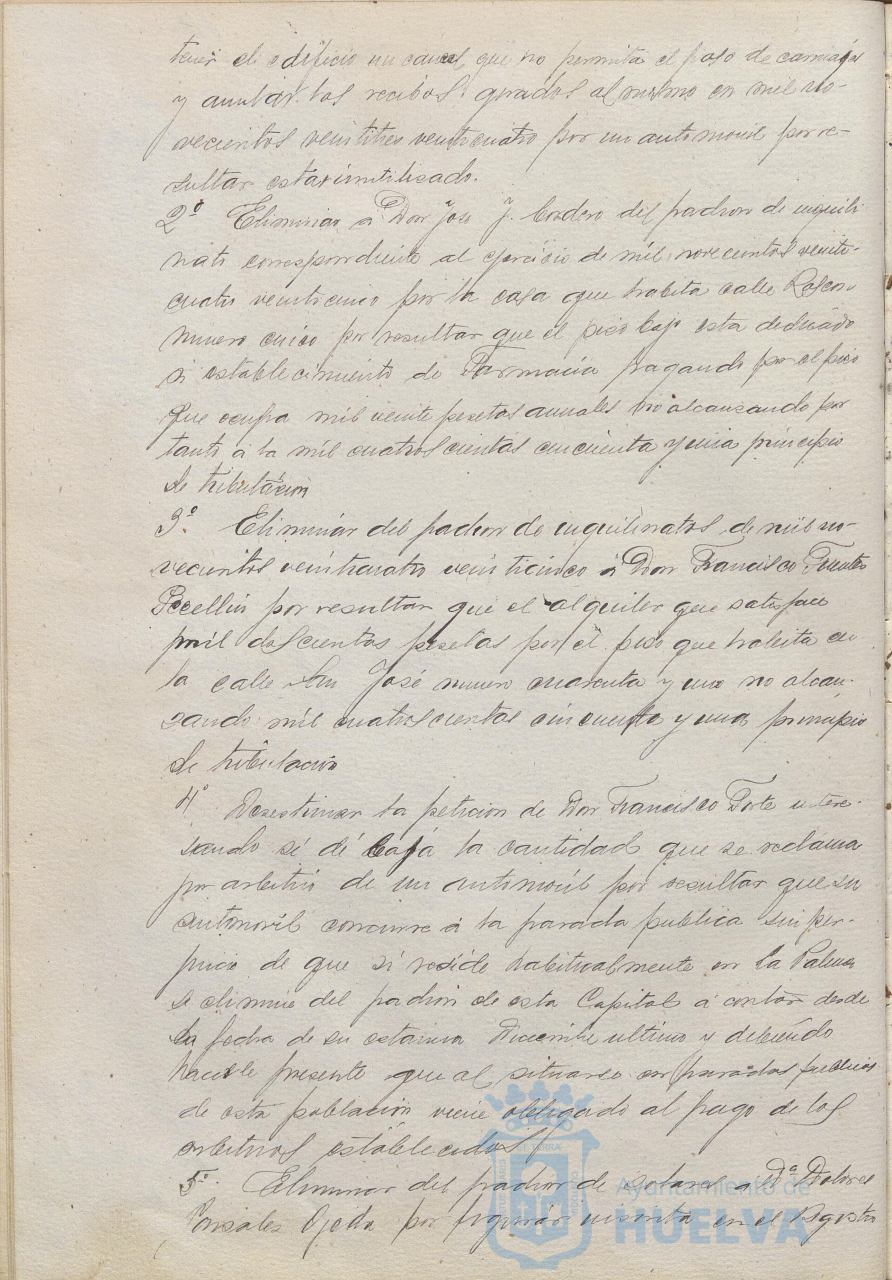 tener el edificio un cancel que no permita el paso de carruajes
y anular los recibos girados al mismo en mil no-
vecientos veintitres veinticuatro por un automovil por re-
sultar estar inutilizado.
2º Eliminar a Don Jose J. Cordero del padron de inquili-
nato correspondiente al ejercicio de mil novecientos veinti-
cuatro veinticinco por la casa que habita calle Rascon
numero cinco por resultar que el piso bajo esta dedicado
a establecimiento de Farmacia pagando por el piso
que ocupa mil veinte pesetas anuales no alcanzando por
tanto á la mil cuatrocientas cincuenta y una principio
de tributacion
3º Eliminar del padron de inquilinatos de mil no-
vecientos veinticuatro veinticinco á Don Francisco Fuentes
por resultar que el alquiler que satisface
mil doscientas pesetas por el piso que habita en
la calle San José numero cuarenta y uno no alcan-
zando mil cuatrocientas cincuenta y una principio
de tributacion
4º Desestimar la peticion de Don Francisco Forte intere-
sando se dé baja la cantidad que se reclama
por arbitrio de un automovil por resultar que su
automovil concurre á la parada publica sin per-
juicio de que si reside habitualmente en La Palma
se elimine del padron de esta Capital á contar desde
la fecha de su Diciembre ultimo y debiendo
hacerle presente que al situarse en paradas publicas
de esta poblacion viene obligado al pago de los
arbitrios establecidos
5º Eliminar del padron de solares a Dª Dolores
Gonzales Ojeda por figurar inscrita en el Registro
Ayuntamiento de
HUELVA